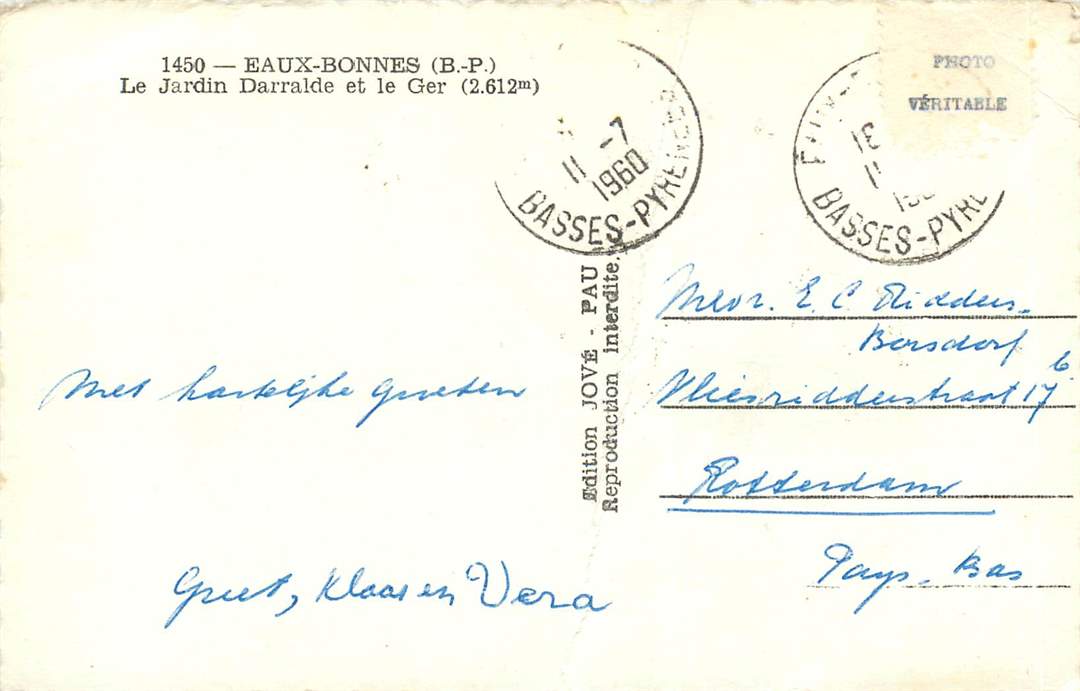 1450 — EAUX-BONNES (B.-P.)
Le Jardin Darralde et le Ger (2.612m)
11 -7
1960
BASSES-PYRENEES
PHOTO
VÉRITABLE
11
BASSES-PYRE
Edition JOVÉ - PAU
Reproduction interdite.
Met hartelijke groeten
Greet, Klaas en Vera
Mevr. E. C. Ridders-
Bersdorf
Vliesridderstraat 17 b
Rotterdam
Pays-Bas